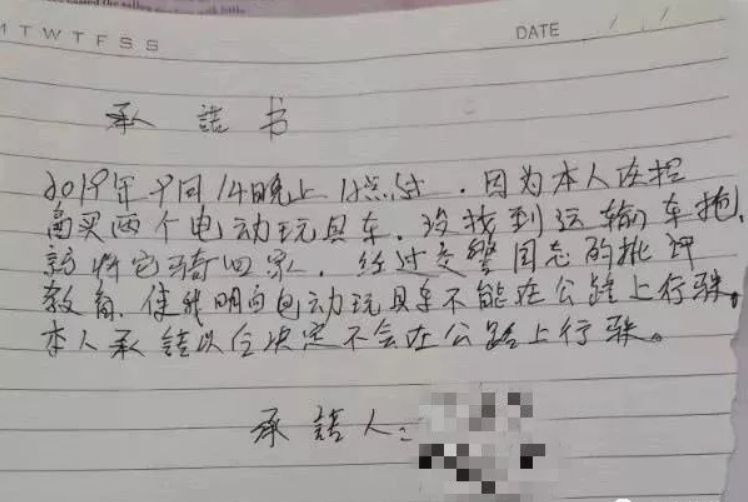 M T W T F S S
DATE / /
承 诺 书
2019年9月14晚上12点过，因为本人在
买两个电动玩具车，没找到运输车拖，
就将它骑回家，经过交警同志的批评
教育，使我明白电动玩具车不能在公路上行驶。
本人承诺以后决定不会在公路上行驶。
承 诺 人：